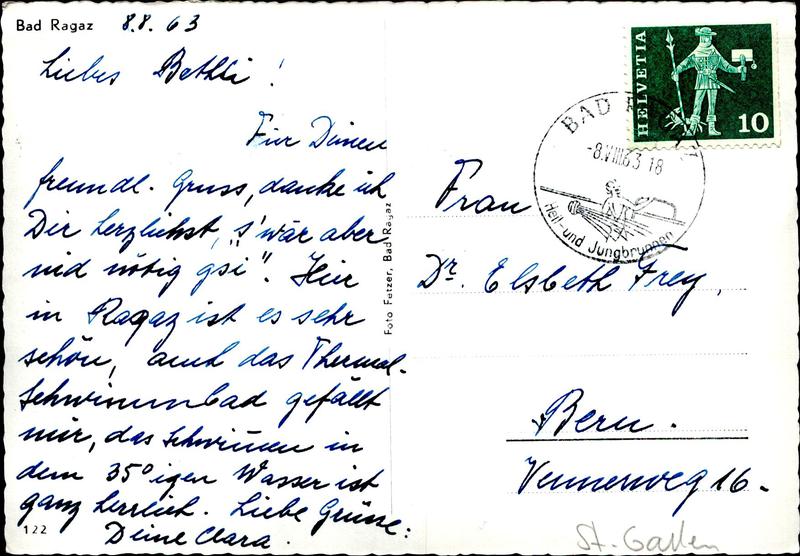 Bad Ragaz 8.8.63
Liebes Bethli!
Für Deinen
freundl. Gruss, danke ich
Dir herzlichst, "s'wär aber
nid nötig gsi". Hier
in Ragaz ist es sehr
schön, auch das Thermal-
schwimmbad gefällt
mir, das Schwimmen in
dem 35°igen Wasser ist
ganz herrlich. Liebe Grüsse:
Deine Clara.
122
Foto Fetzer, Bad Ragaz
HELVETIA
10
BAD RAGAZ
-8.VIII.63 18
Heil-und Jungbrunnen
Frau
Dr. Elsbeth Frey,
Bern.
Vennerweg 16.
St. Gallen